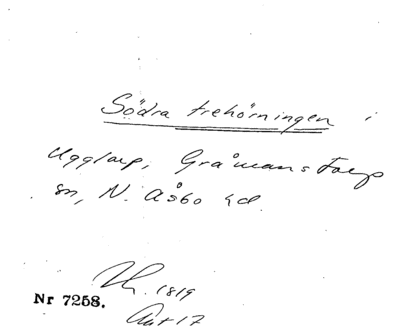 Södra trehörningen i
Ugglarp, Gråmanstorp
sn, N. Åsbo hd.
1819
Nr 7258.
Akt 17